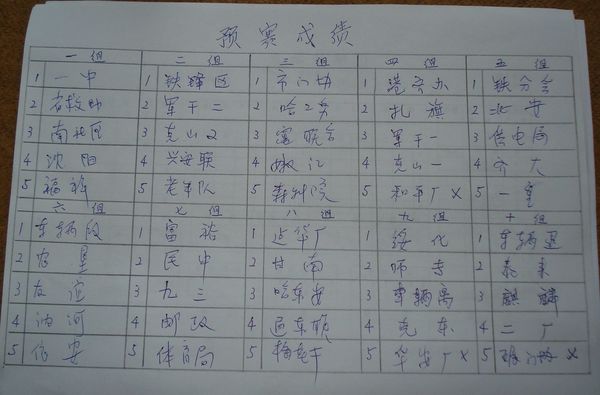 预赛成绩
一组 二组 三组 四组 五组
1 一中 1 铁锋区 1 市门协 1 港务办 1 铁分会
2 2 军干二 2 哈工务 2 扎旗 2 北安
3 南北区 3 克山2 3 富联会 3 军干一 3 供电局
4 沈阳 4 兴安联 4 嫩江 4 克山一 4 齐大
5 福裕 5 老年队 5 森林院 5 和平厂 X 5 一重
六组 七组 八组 九组 十组
1 车辆段 1 富裕 1 建华厂 1 绥化 1 车辆退
2 农垦 2 民中 2 甘南 2 师专 2 泰来
3 友谊 3 九三 3 哈东安 3 车辆离 3 麒麟
4 讷河 4 邮政 4 4 克东 4 二厂
5 依安 5 体育局 5 5 华安厂 X 5 X